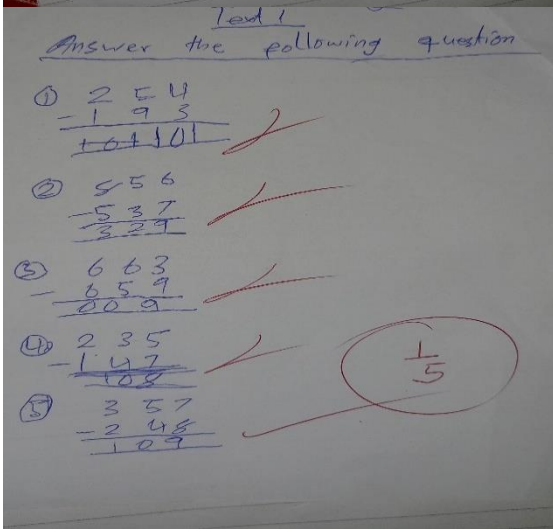 Test 1
Answer the following question
① 2 5 4
- 1 9 3
101
② 5 5 6
- 5 3 7
3 2 9
③ 6 6 3
- 6 5 9
0 0 9
④ 2 3 5
- 1 4 7
1 0 8
⑤ 3 5 7
- 2 4 8
1 0 9
1/5